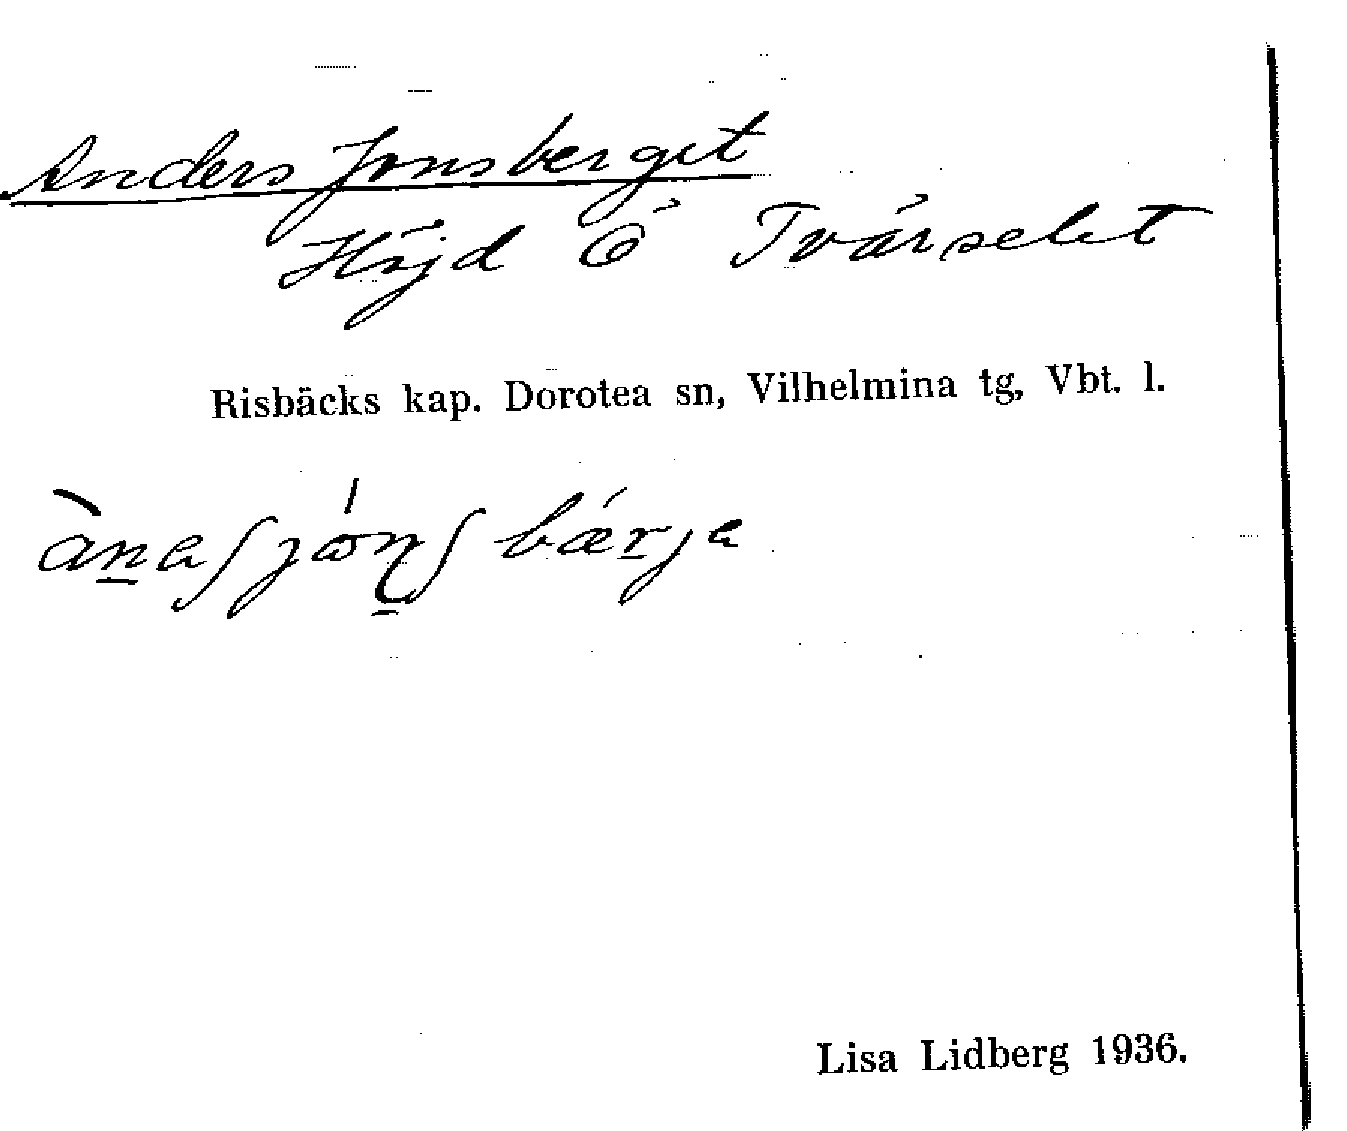 Anders Jonsberget
Höjd Ö Tvärselet
Risbäcks kap. Dorotea sn, Vilhelmina tg, Vbt. l.
Lisa Lidberg 1936.